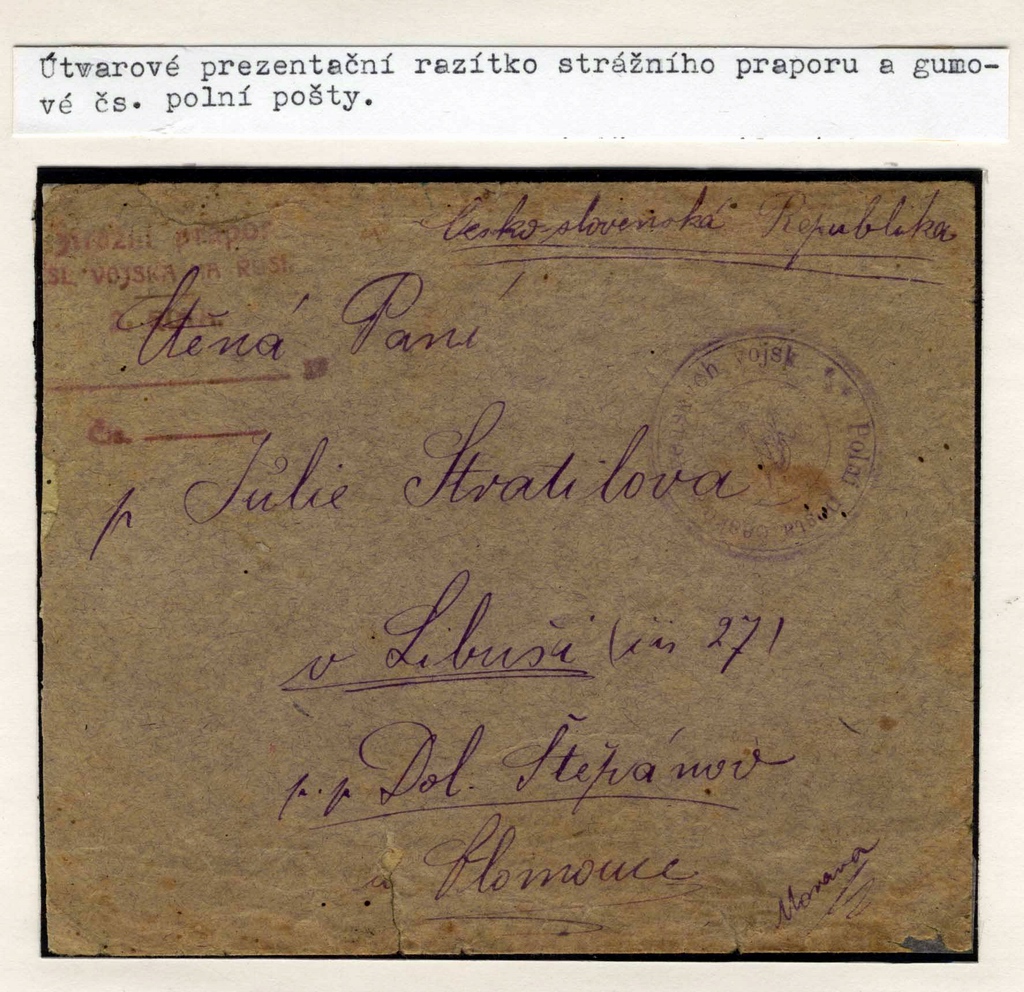 Útvarové prezentační razítko strážního praporu a gumo-
vé čs. polní pošty.
Česko slovenská Republika
Strážní prapor
ČSL. VOJSKA NA RUSI.
Ctěná Paní
Čís.
Polní Pošta česko vojsk **
p Julie Stratilova
v Libuši (čis 27)
p. p Dol. Štěpánov
u Olomouce
Morava